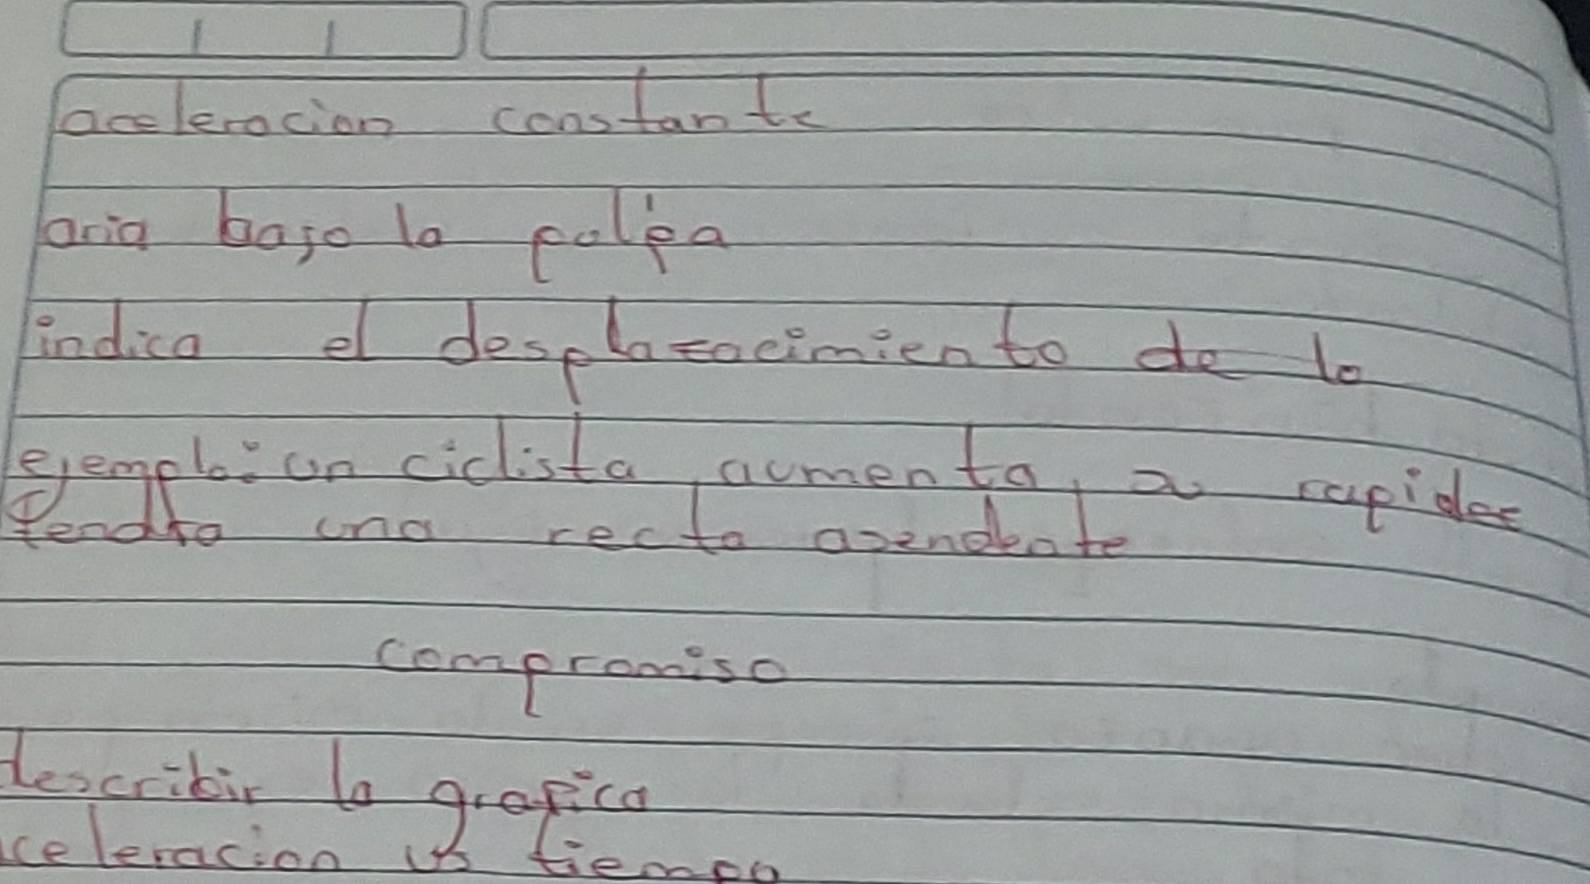 aceleracion constante
aria bajo la polpa
indica el desplazacimiento de lo
ejemplo: un ciclista aumenta, a rapides
tendra una recta asendente
compromiso
describir la grafica
celeracion vs tiempo